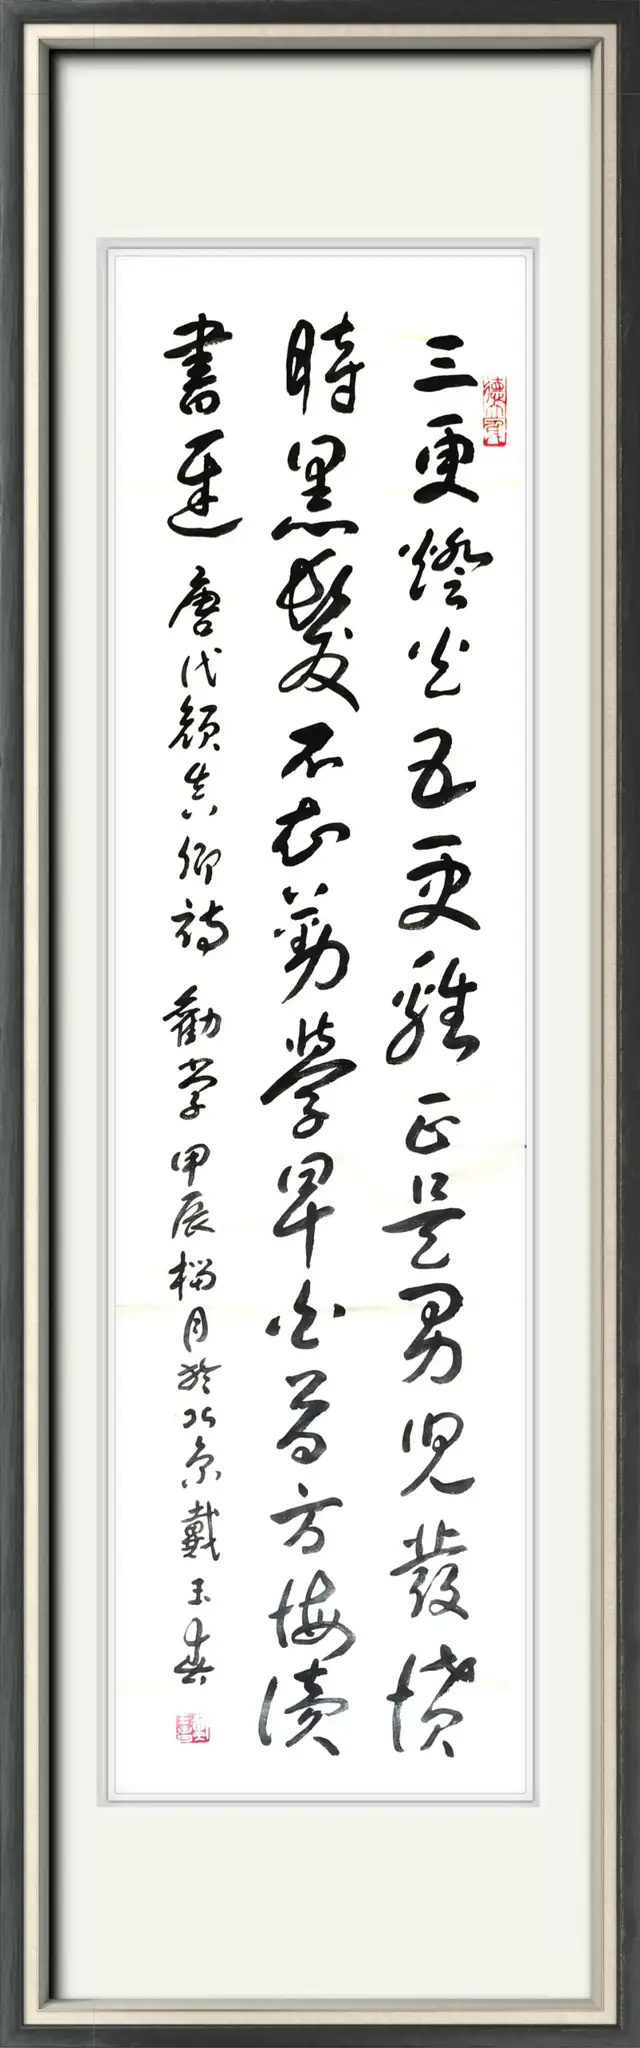 三更燈火五更雞正是男兒發憤
時黑髮不知勤學早白首方悔讀
書遲 唐代顏真卿詩 勸學 甲辰榴月於北京戴玉春